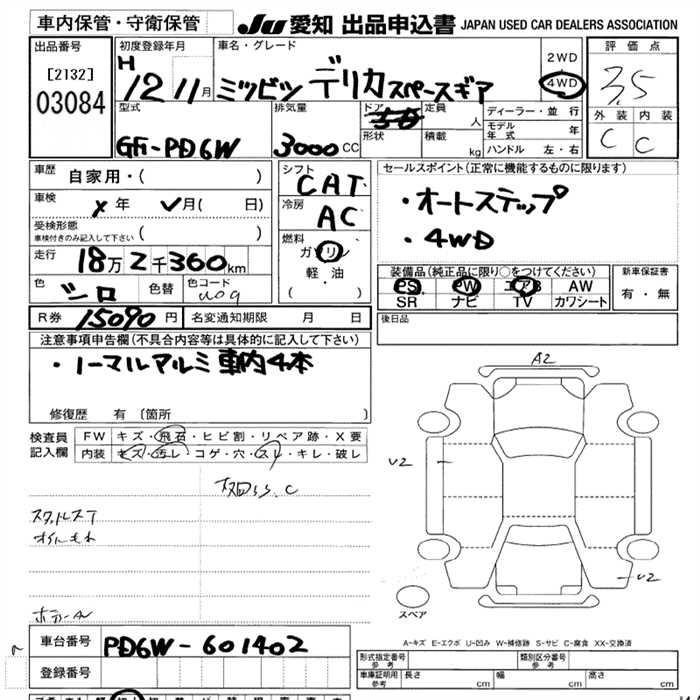 車内保管・守衛保管
JU 愛知 出品申込書 JAPAN USED CAR DEALERS ASSOCIATION
出品番号
[2132]
03084
初度登録年月
H 12 11月
車名・グレード
ミツビシ デリカスペースギア
2WD
4WD
評価点
3.5
外装 内装
C C
型式
GF-PD6W
排気量
3000CC
ドア
形状
定員 人
積載 kg
ディーラー・並行
モデル年式 年
ハンドル 左・右
車歴 自家用・( )
車検 年 月( 日)
受検形態
車検付きのみ記入して下さい ( )
走行 18万2千360km
色 シロ 色替 色コード W09
R券 15090円 名変通知期限 月 日
シフト CAT
冷房 AC
燃料
ガソリン
軽・油
( )
セールスポイント(正常に機能するものに限ります)
・オートステップ
・4WD
装備品(純正品に限り○をつけてください)
PS PW エアB AW
SR ナビ TV カワシート
新車保証書
有・無
後日品
注意事項申告欄(不具合内容等は具体的に記入して下さい)
・ノーマルアルミ車内4本
修復歴 有〔箇所
検査員記入欄
FW キズ・飛石・ヒビ割・リペア跡・X要
内装 キズ・汚レ・コゲ・穴・スレ・キレ・破レ
スタットレスT
A2
U2
U2
スペア
A-キズ E-エクボ U-凹み W-補修跡 S-サビ C-腐食 XX-交換済
車台番号 PD6W-601402
登録番号
形式指定番号 参考
類別区分番号 参考
車庫証明用 参考 長さ cm 幅 cm 高さ cm